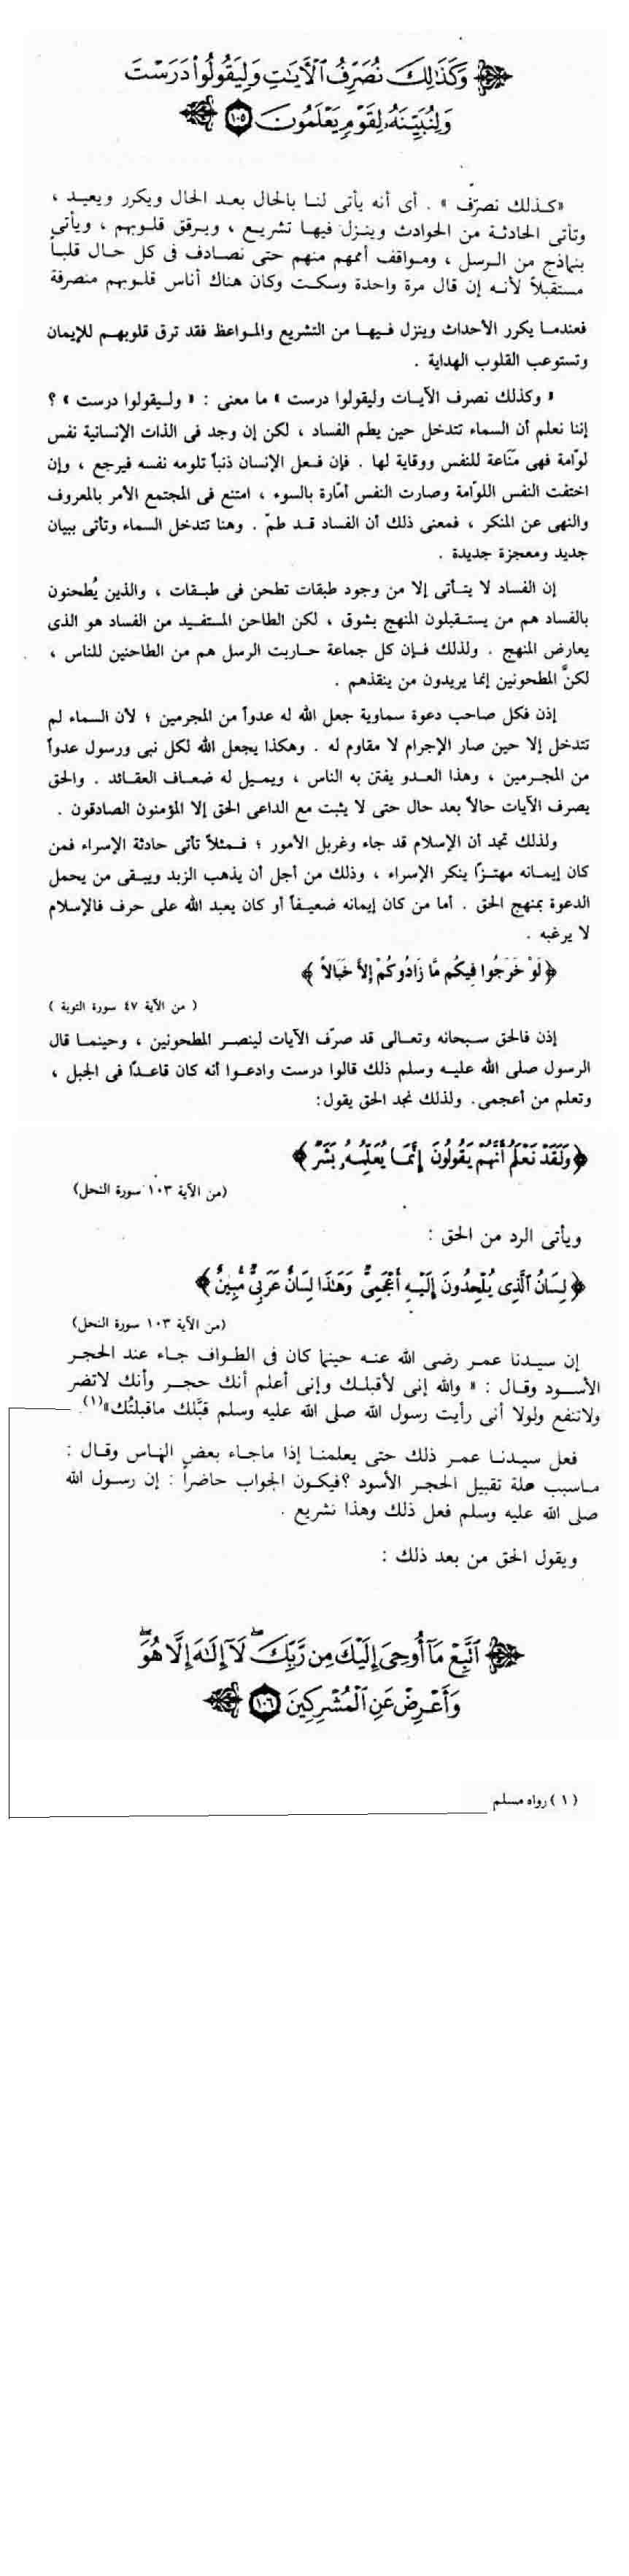 وَكَذَٰلِكَ نُصَرِّفُ ٱلْأَيَٰتِ وَلِيَقُولُوا۟ دَرَسْتَ
وَلِنُبَيِّنَهُۥ لِقَوْمٍ يَعْلَمُونَ ١٠٥
«كـذلك نصرّف» . أى أنه يأتى لنـا بالحال بعـد الحال ويكرر ويعيـد ،
وتأتى الحادثـة من الحوادث وينـزل فيهـا تشريـع ، ويـرقق قلـوبهم ، ويأتى
بنماذج من الـرسل ، ومـواقف أممهم منهم حتى تصـادف فى كل حـال قلبـاً
مستقبلاً لأنـه إن قال مرة واحدة وسكـت وكان هناك أناس قلـوبهم منصرفة
فعندمـا يكرر الأحداث وينزل فـيهـا من التشريع والمـواعظ فقد ترق قلوبهـم للإيمان
وتستوعب القلوب الهداية .
« وكذلك نصرف الآيـات وليقولوا درست » ما معنى : « ولـيقولوا درست » ؟
إننا نعلم أن السماء تتدخل حين يطم الفساد ، لكن إن وجد فى الذات الإنسانية نفس
لوّامة فهى منّاعة للنفس ووقاية لها . فإن فـعل الإنسان ذنباً تلومه نفسه فيرجع ، وإن
اختفت النفس اللوّامة وصارت النفس أمّارة بالسوء ، امتنع فى المجتمع الأمر بالمعروف
والنهى عن المنكر ، فمعنى ذلك أن الفساد قـد طمّ . وهنا تتدخل السماء وتأتى ببيان
جديد ومعجزة جديدة .
إن الفساد لا يتـأتى إلا من وجود طبقات تطحن فى طبـقات ، والذين يُطحنون
بالفساد هم من يستـقبلون المنهج بشوق ، لكن الطاحن المستفـيد من الفساد هو الذى
يعارض المنهج . ولذلك فـإن كل جماعة حـاربت الرسل هم من الطاحنين للناس ،
لكنَّ المطحونين إنما يريدون من ينقذهم .
إذن فكل صاحب دعوة سماوية جعل الله له عدواً من المجرمين ؛ لأن السماء لم
تتدخل إلا حين صار الإجرام لا مقاوم له . وهكذا يجعل الله لكل نبى ورسول عدواً
من المجـرمين ، وهذا العـدو يفتن به الناس ، ويميـل له ضعـاف العقـائد . والحق
يصرف الآيات حالاً بعد حال حتى لا يثبت مع الداعى الحق إلا المؤمنون الصادقون .
ولذلك تجد أن الإسلام قد جاء وغربل الأمور ؛ فـمثلاً تأتى حادثة الإسراء فمن
كان إيمـانه مهتـزا ينكر الإسراء ، وذلك من أجل أن يذهب الزبد ويبـقى من يحمل
الدعوة بمنهج الحق . أما من كان إيمانه ضعيـفاً أو كان يعبد الله على حرف فالإسلام
لا يرغبه .
﴿ لَوْ خَرَجُوا فِيكُم مَّا زَادُوكُمْ إِلاَّ خَبَالاً ﴾
( من الآية ٤٧ سورة التوبة )
إذن فالحق سـبحانه وتعـالى قد صرّف الآيات لينصـر المطحونين ، وحينمـا قال
الرسول صلى الله عليـه وسلم ذلك قالوا درست وادعـوا أنه كان قاعـدًا فى الجبل ،
وتعلم من أعجمى. ولذلك نجد الحق يقول:
﴿ وَلَقَدْ نَعْلَمُ أَنَّهُمْ يَقُولُونَ إِنَّمَا يُعَلِّمُهُۥ بَشَرٌ ﴾
(من الآية ١٠٣ سورة النحل)
ويأتى الرد من الحق :
﴿ لِسَانُ ٱلَّذِى يُلْحِدُونَ إِلَيْهِ أَعْجَمِىٌّ وَهَٰذَا لِسَانٌ عَرَبِىٌّ مُّبِينٌ ﴾
(من الآية ١٠٣ سورة النحل)
إن سيـدنا عمـر رضى الله عنـه حينما كان فى الطـواف جـاء عند الحجـر
الأسـود وقـال : « والله إنى لأقبلـك وإنى أعلم أنك حجـر وأنك لاتضر
ولاتنفع ولولا أنى رأيت رسول الله صلى الله عليه وسلم قبَّلك ماقبلتُك»(١).
فعل سيـدنـا عمـر ذلك حتى يعلمنـا إذا ماجـاء بعض النـاس وقـال :
مـاسبب علة تقبيل الحجـر الأسود ؟فيكـون الجواب حاضراً : إن رسـول الله
صلى الله عليه وسلم فعل ذلك وهذا تشريع .
ويقول الحق من بعد ذلك :
ٱتَّبِعْ مَآ أُوحِىَ إِلَيْكَ مِن رَّبِّكَ لَآ إِلَٰهَ إِلَّا هُوَ
وَأَعْرِضْ عَنِ ٱلْمُشْرِكِينَ ١٠٦
( ١ ) رواه مسلم